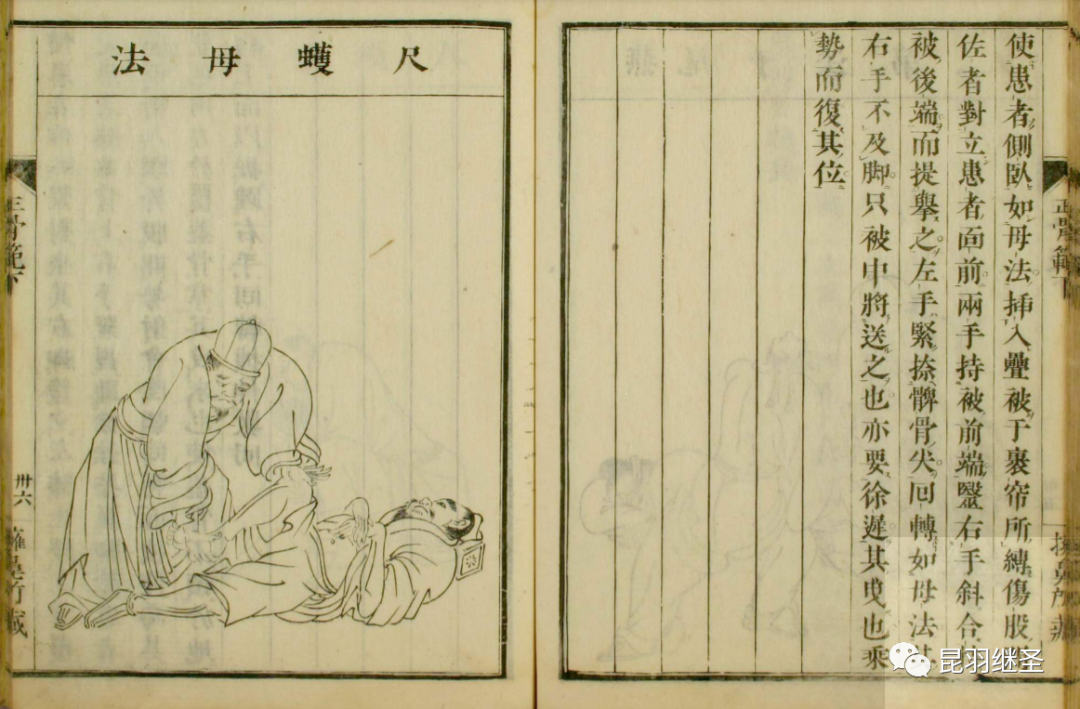 使患者側臥如母法挿入疊被于裹帘所縛傷股
佐者對立患者面前兩手持被前端醫右手斜合
被後端而提舉之左手緊捺髀骨尖回轉如母法其
右手不及脚只被中將送之也亦要徐遲其曳也乘
勢而復其位
正骨範下
尺蠖母法
正骨範下
卅六
昆羽继圣